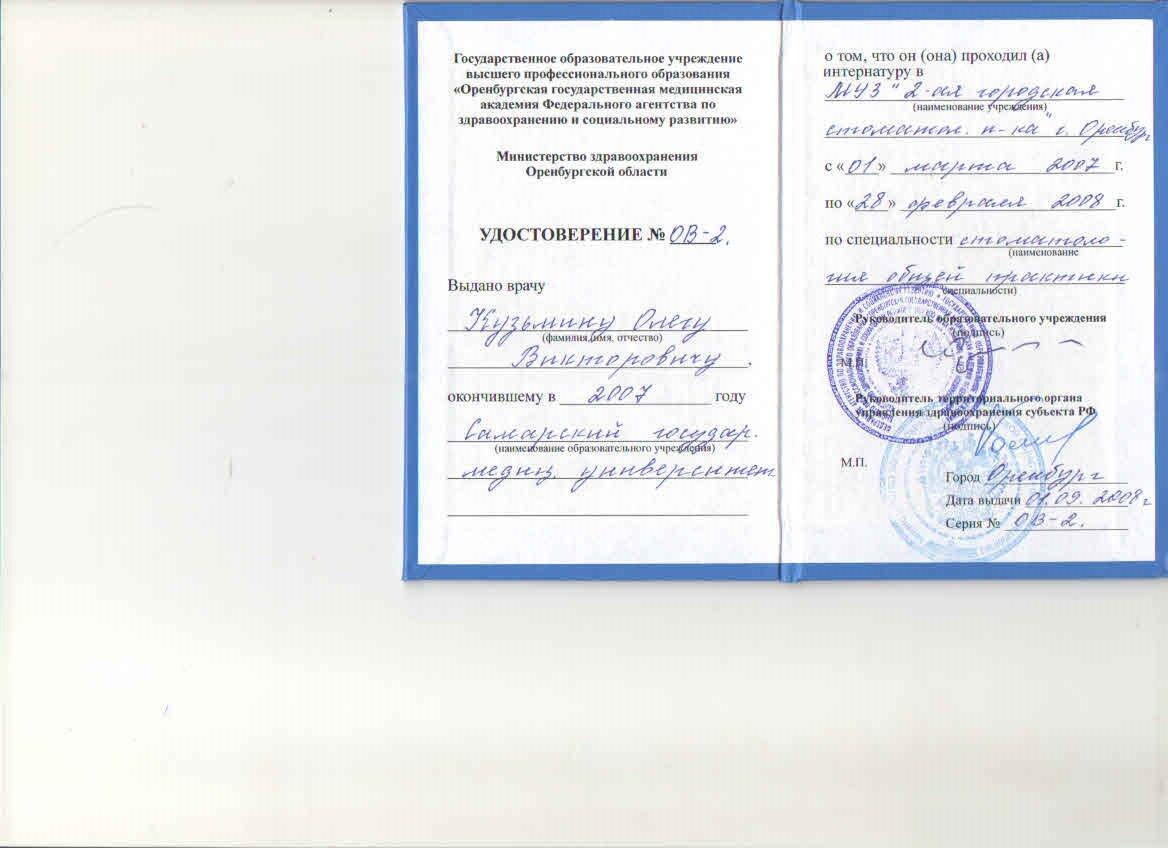 Государственное образовательное учреждение
высшего профессионального образования
«Оренбургская государственная медицинская
академия Федерального агентства по
здравоохранению и социальному развитию»
Министерство здравоохранения
Оренбургской области
УДОСТОВЕРЕНИЕ № ОВ-2.
Выдано врачу
Кузьмину Олегу
(фамилия, имя, отчество)
Викторовичу,
окончившему в 2007 году
Самарский государ.
(наименование образовательного учреждения)
медиц. университет
о том, что он (она) проходил (а)
интернатуру в
МУЗ "2-ая городская
(наименование учреждения)
стоматол. п-ка" г. Оренбург
с «01» марта 2007 г.
по «28» февраля 2008 г.
по специальности стоматоло-
(наименование
гия общей практики
специальности)
Руководитель образовательного учреждения
(подпись)
М.П.
Руководитель территориального органа
управления здравоохранения субъекта РФ
(подпись)
М.П.
Город Оренбург
Дата выдачи 01.09.2008г
Серия № ОВ-2.